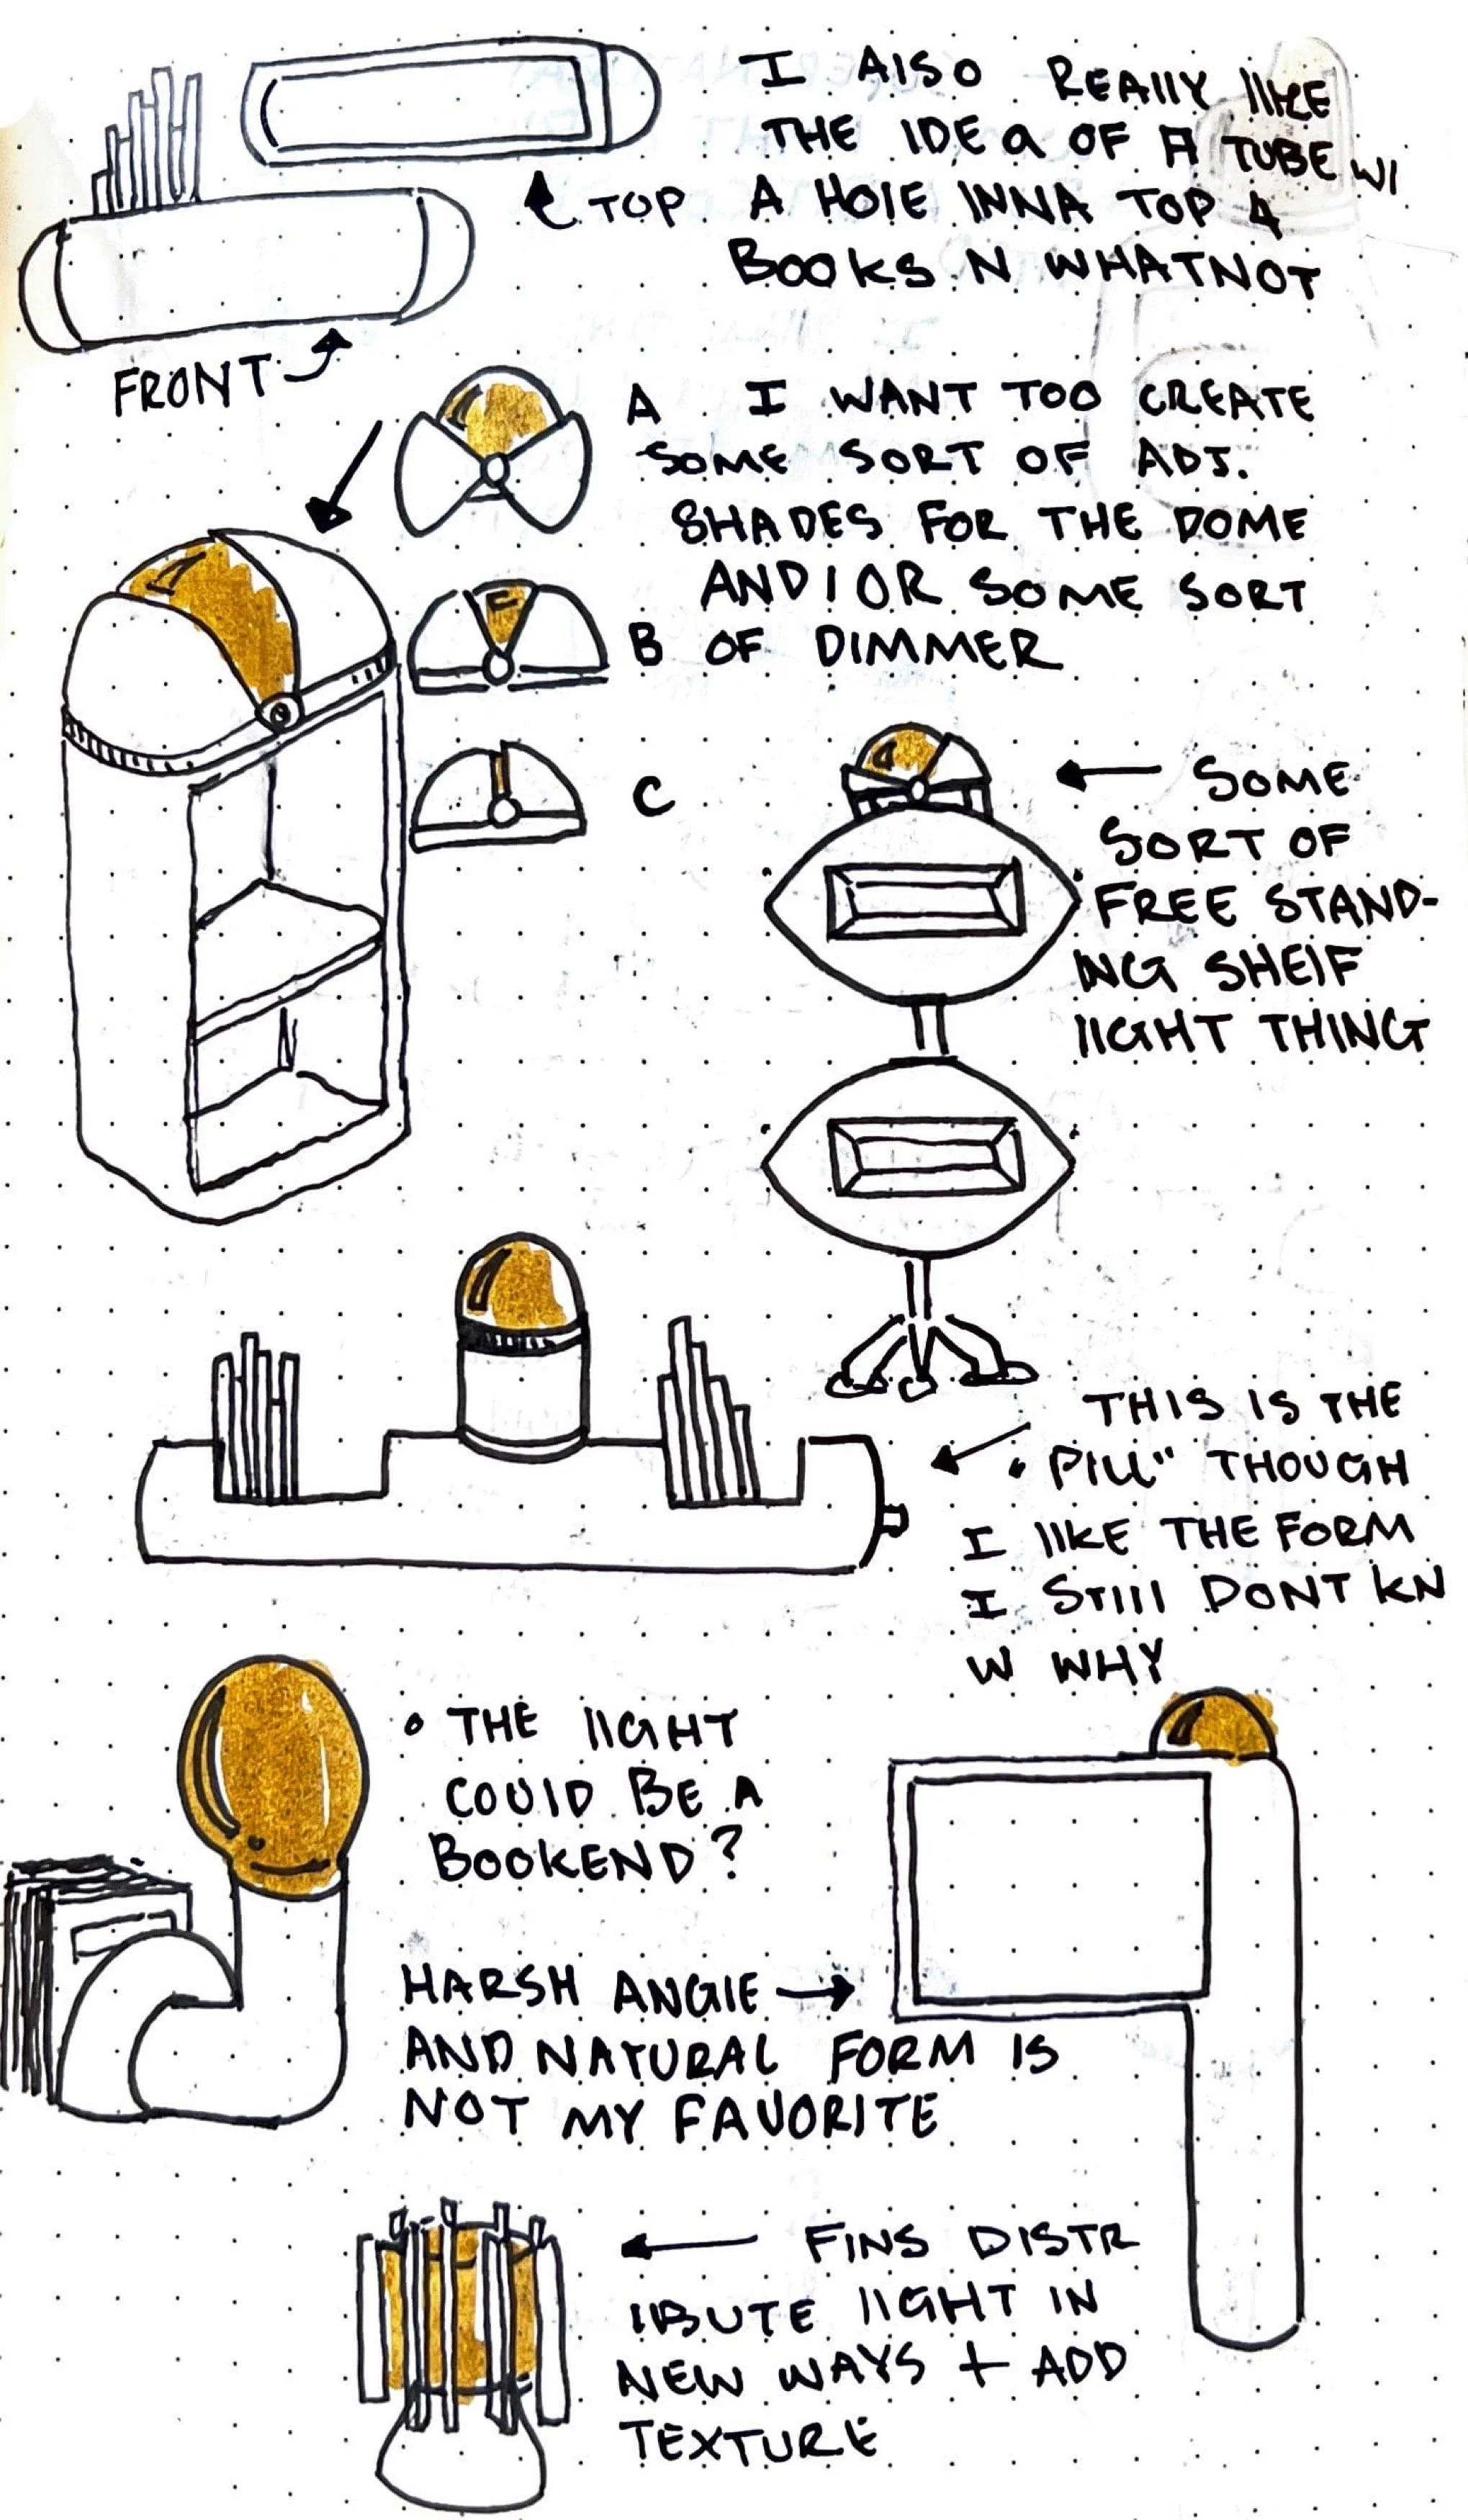 I AlSO REAllY lIKE
THE IDEa OF A TUBE W/
TOP A HOlE INNA TOP 4
BOOKS N WHATNOT
FRONT
A I WANT TOO CREATE
SOME SORT OF ADJ.
SHADES FOR THE DOME
AND/OR SOME SORT
B OF DIMMER
C
SOME
SORT OF
FREE STAND-
ING SHElF
lIGHT THING
THIS IS THE
"PIll" THOUGH
I lIKE THE FORM
I STIll DONT KN
W WHY
• THE lIGHT
COUlD BE A
BOOKEND?
HARSH ANGlE
AND NATURAL FORM IS
NOT MY FAVORITE
FINS DISTR
IBUTE lIGHT IN
NEW WAYS + ADD
TEXTURE